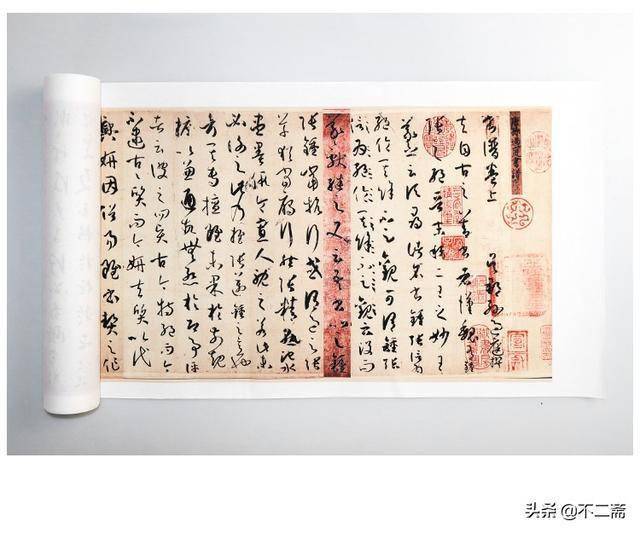 書譜卷上 吳郡孫過庭撰
夫自古之善書者漢魏有鍾
張之絕晉末稱二王之妙王
羲之云頃尋諸名書鍾張信為
絕倫其餘不足觀可謂鍾張
云沒而
羲獻繼之又云吾書比之鍾
張鍾當抗行或謂過之張
草猶當雁行然張精熟池水
盡墨假令寡人耽之若此未
必謝之此乃推張邁鍾之意也
考其專擅雖未果於前規
摭以兼通故無慚於即事評
者云彼之四賢古今特絕而今
不逮古古質而今妍夫質以代
興妍因俗易雖書契之作
头条 @不二斋